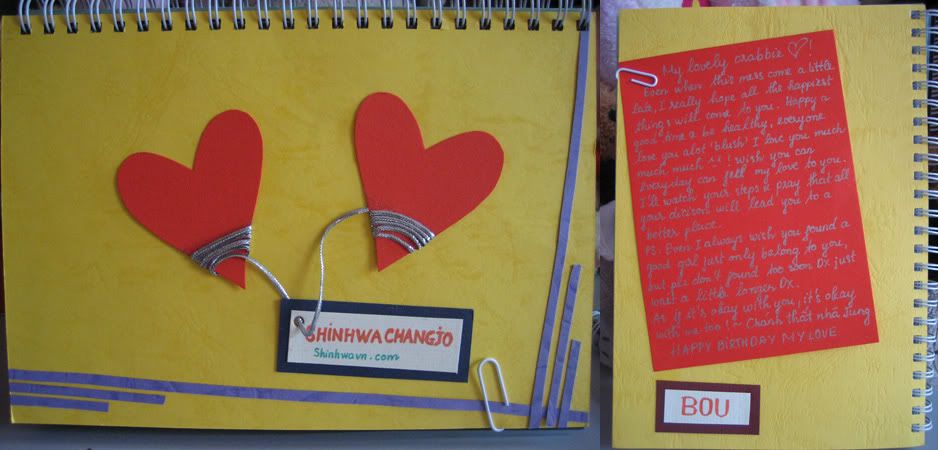 SHINHWA CHANGJO
Shinhwavn.com
My lovely crabbie !
Even when this mess come a little
late, I really hope all the happiest
things will come to you. Happy a
good time & be healthy, everyone
love you alot 'blush' I love you much
much much ^^ ! wish you can
Everyday can fell my love to you.
I'll watch your steps & pray that all
your dicison will lead you to a
better place.
PS. Even I always wish you found a
good girl just only belong to you,
but plz don't found too soon Dx just
wait a little longer Dx.
As if it's okay with you, it's okay
with me too! ~ Chánh thất nhà Jung
HAPPY BIRTHDAY MY LOVE
BOU